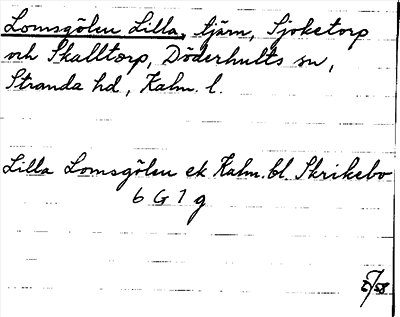 Lomsgölen Lilla, tjärn, Sjöketorp
och Skalltorp, Döderhults sn,
Stranda hd, Kalm. l.
Lilla Lomsgölen ek Kalm. bl. Skrikebo
6 G 7 g